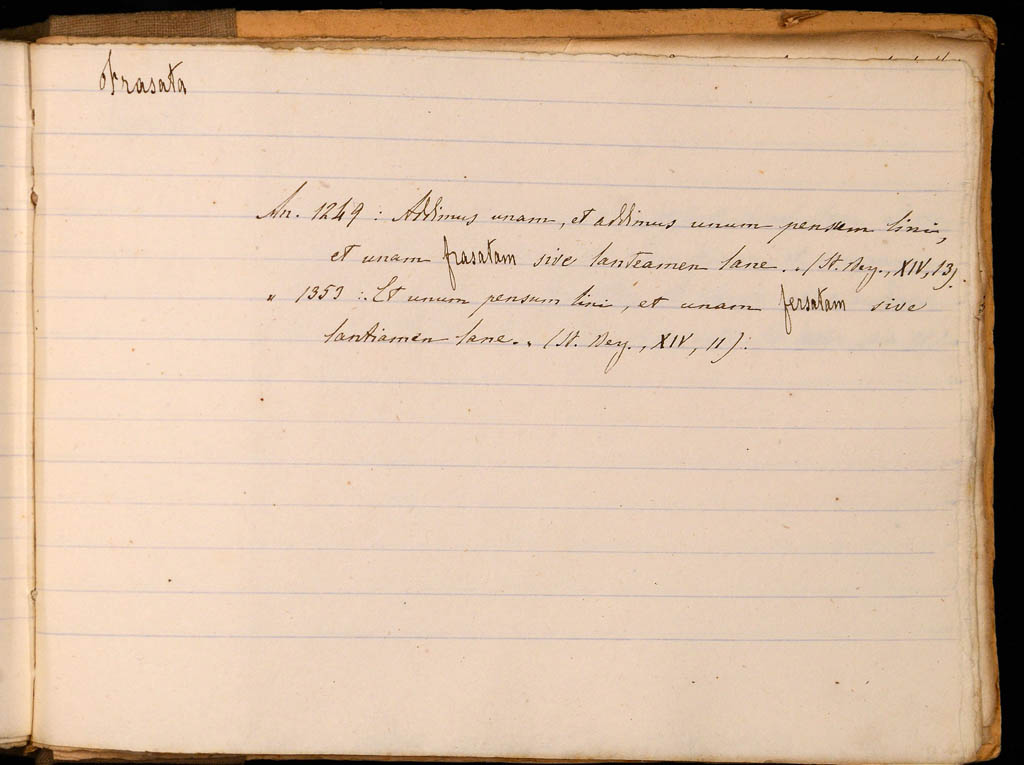 Frasata
An. 1249 : Addimus unam, et addimus unum pensum lini,
et unam frasatam sive lanteamen lane. „ (St. Rey., XIV, 13).
„ 1353 : Et unum pensum lini, et unam fersatam sive
lantiamen lane. „ (St. Rey., XIV, 11).